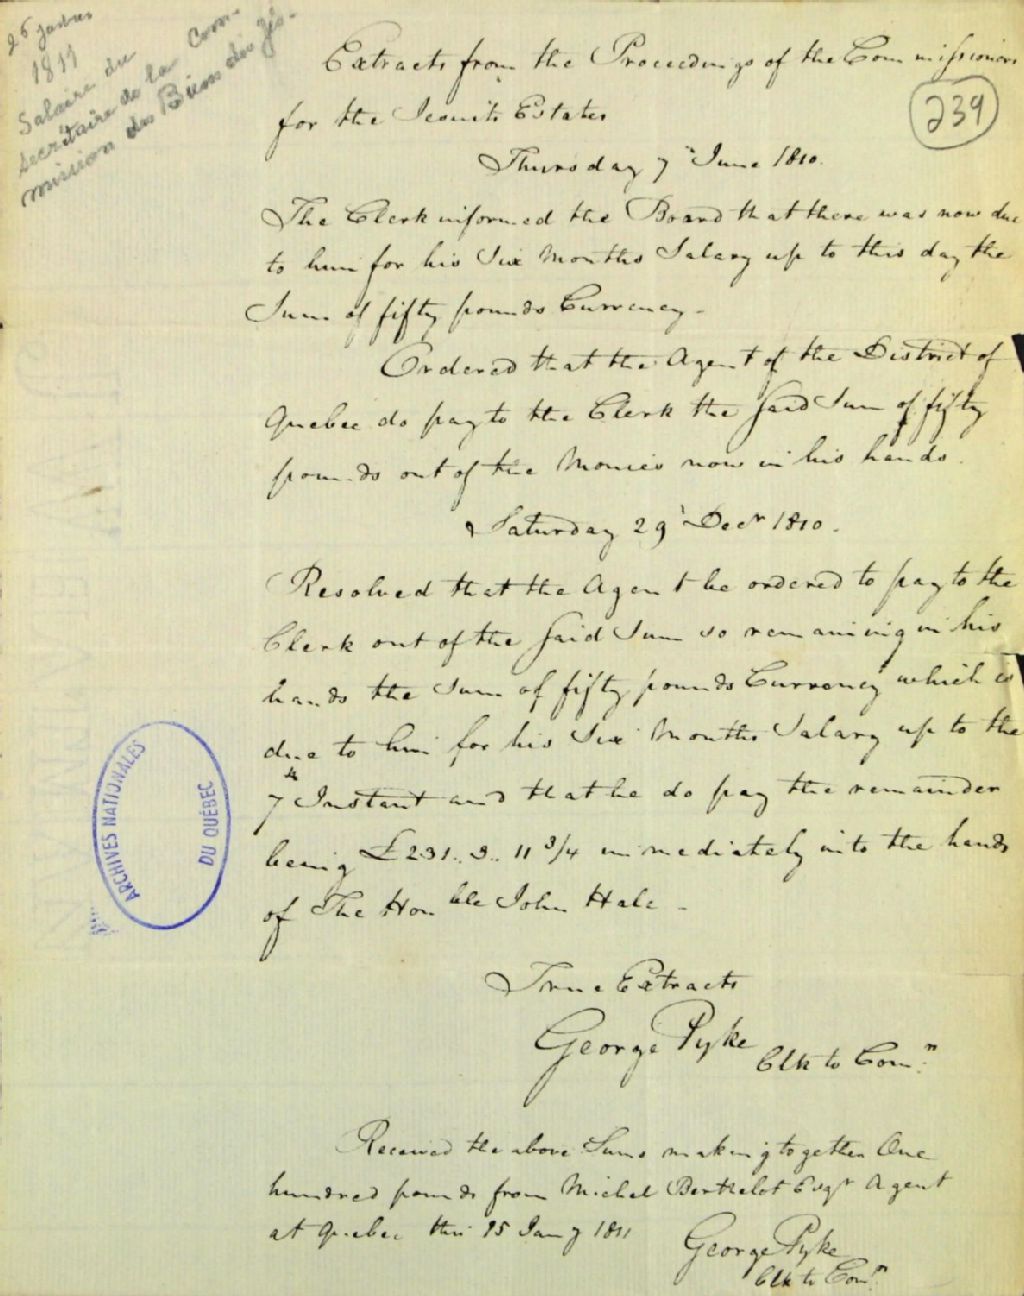 25 janvier
1811
Salaire du
secrétaire de la Com-
mission des Biens des Jés-
239
Extracts from the Proceedings of the Commissioners
for the Jesuits Estates
Thursday 7th June 1810.
The Clerk informed the Board that there was now due
to him for his Six Months Salary up to this day the
Sum of fifty pounds Currency -
Ordered that the Agent of the District of
Quebec do pay to the Clerk the said Sum of fifty
pounds out of the Monies now in his hands.
Saturday 29th Decr 1810.
Resolved that the Agent be ordered to pay to the
Clerk out of the said Sum so remaining in his
hands the Sum of fifty pounds Currency which is
due to him for his Six Months Salary up to the
7th Instant and that he do pay the remainder
being £231..3..11 3/4 immediately into the hands
of The Honble John Hale -
True Extracts
George Pyke
Clk to Comn.
Received the above Sums making together One
hundred pounds from Michel Berthelot Esqr Agent
at Quebec this 25 Jany 1811
George Pyke
Clk to Comn.
ARCHIVES NATIONALES
DU QUÉBEC